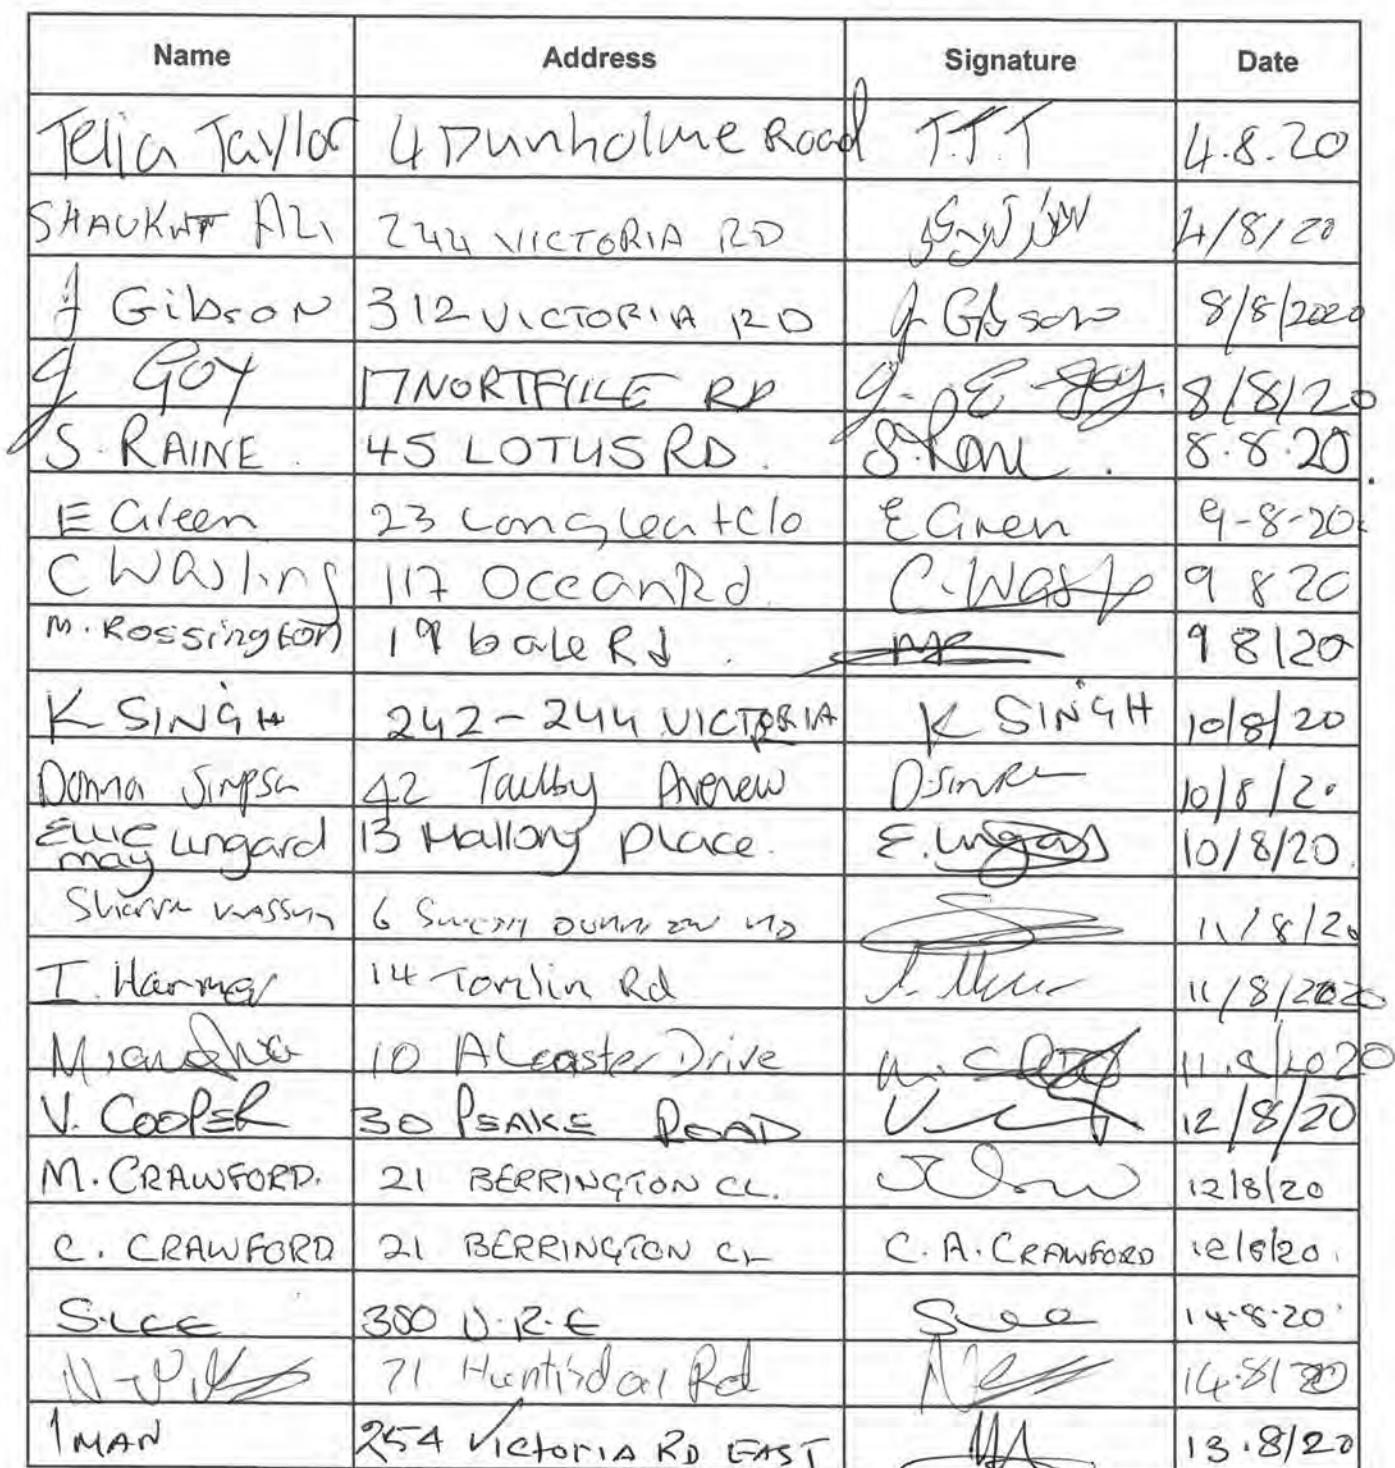 Name Address Signature Date
Telia Taylor 4 Dunholme Road T.T.T 4.8.20
SHAUKAT ALI 244 VICTORIA RD 4/8/20
J Gibson 312 VICTORIA RD J Gibson 8/8/2020
J GOY 17 NORTFIILE RD J. E Goy. 8/8/20
S. RAINE. 45 LOTUS RD. S. Raine. 8.8.20.
E Green 23 Longleat clo E Green 9-8-20.
C Wasling 117 Ocean Rd. C. Wasl 9 8 20
M. Rossington 19 bale Rd. MR 9 8/20
K SINGH 242-244 VICTORIA K SINGH 10/8/20
Donna Simpson 42 Avenew 10/8/20
Ellie may Lingard 13 Mallory place. E. Lingard 10/8/20.
6 11/8/20
I. Harmer 14 Tomlin Rd 11/8/2020
10 Alcaster Drive 11.8/2020
V. COOPER 30 PEAKE ROAD 12/8/20
M. CRAWFORD. 21 BERRINGTON CL. 12/8/20
C. CRAWFORD 21 BERRINGTON CL C. A. CRAWFORD 12/8/20.
S. LEE 380 V.R.E S Lee 14.8.20
71 Rd 14.8/20
IMAN 254 Victoria RD EAST 13.8/20